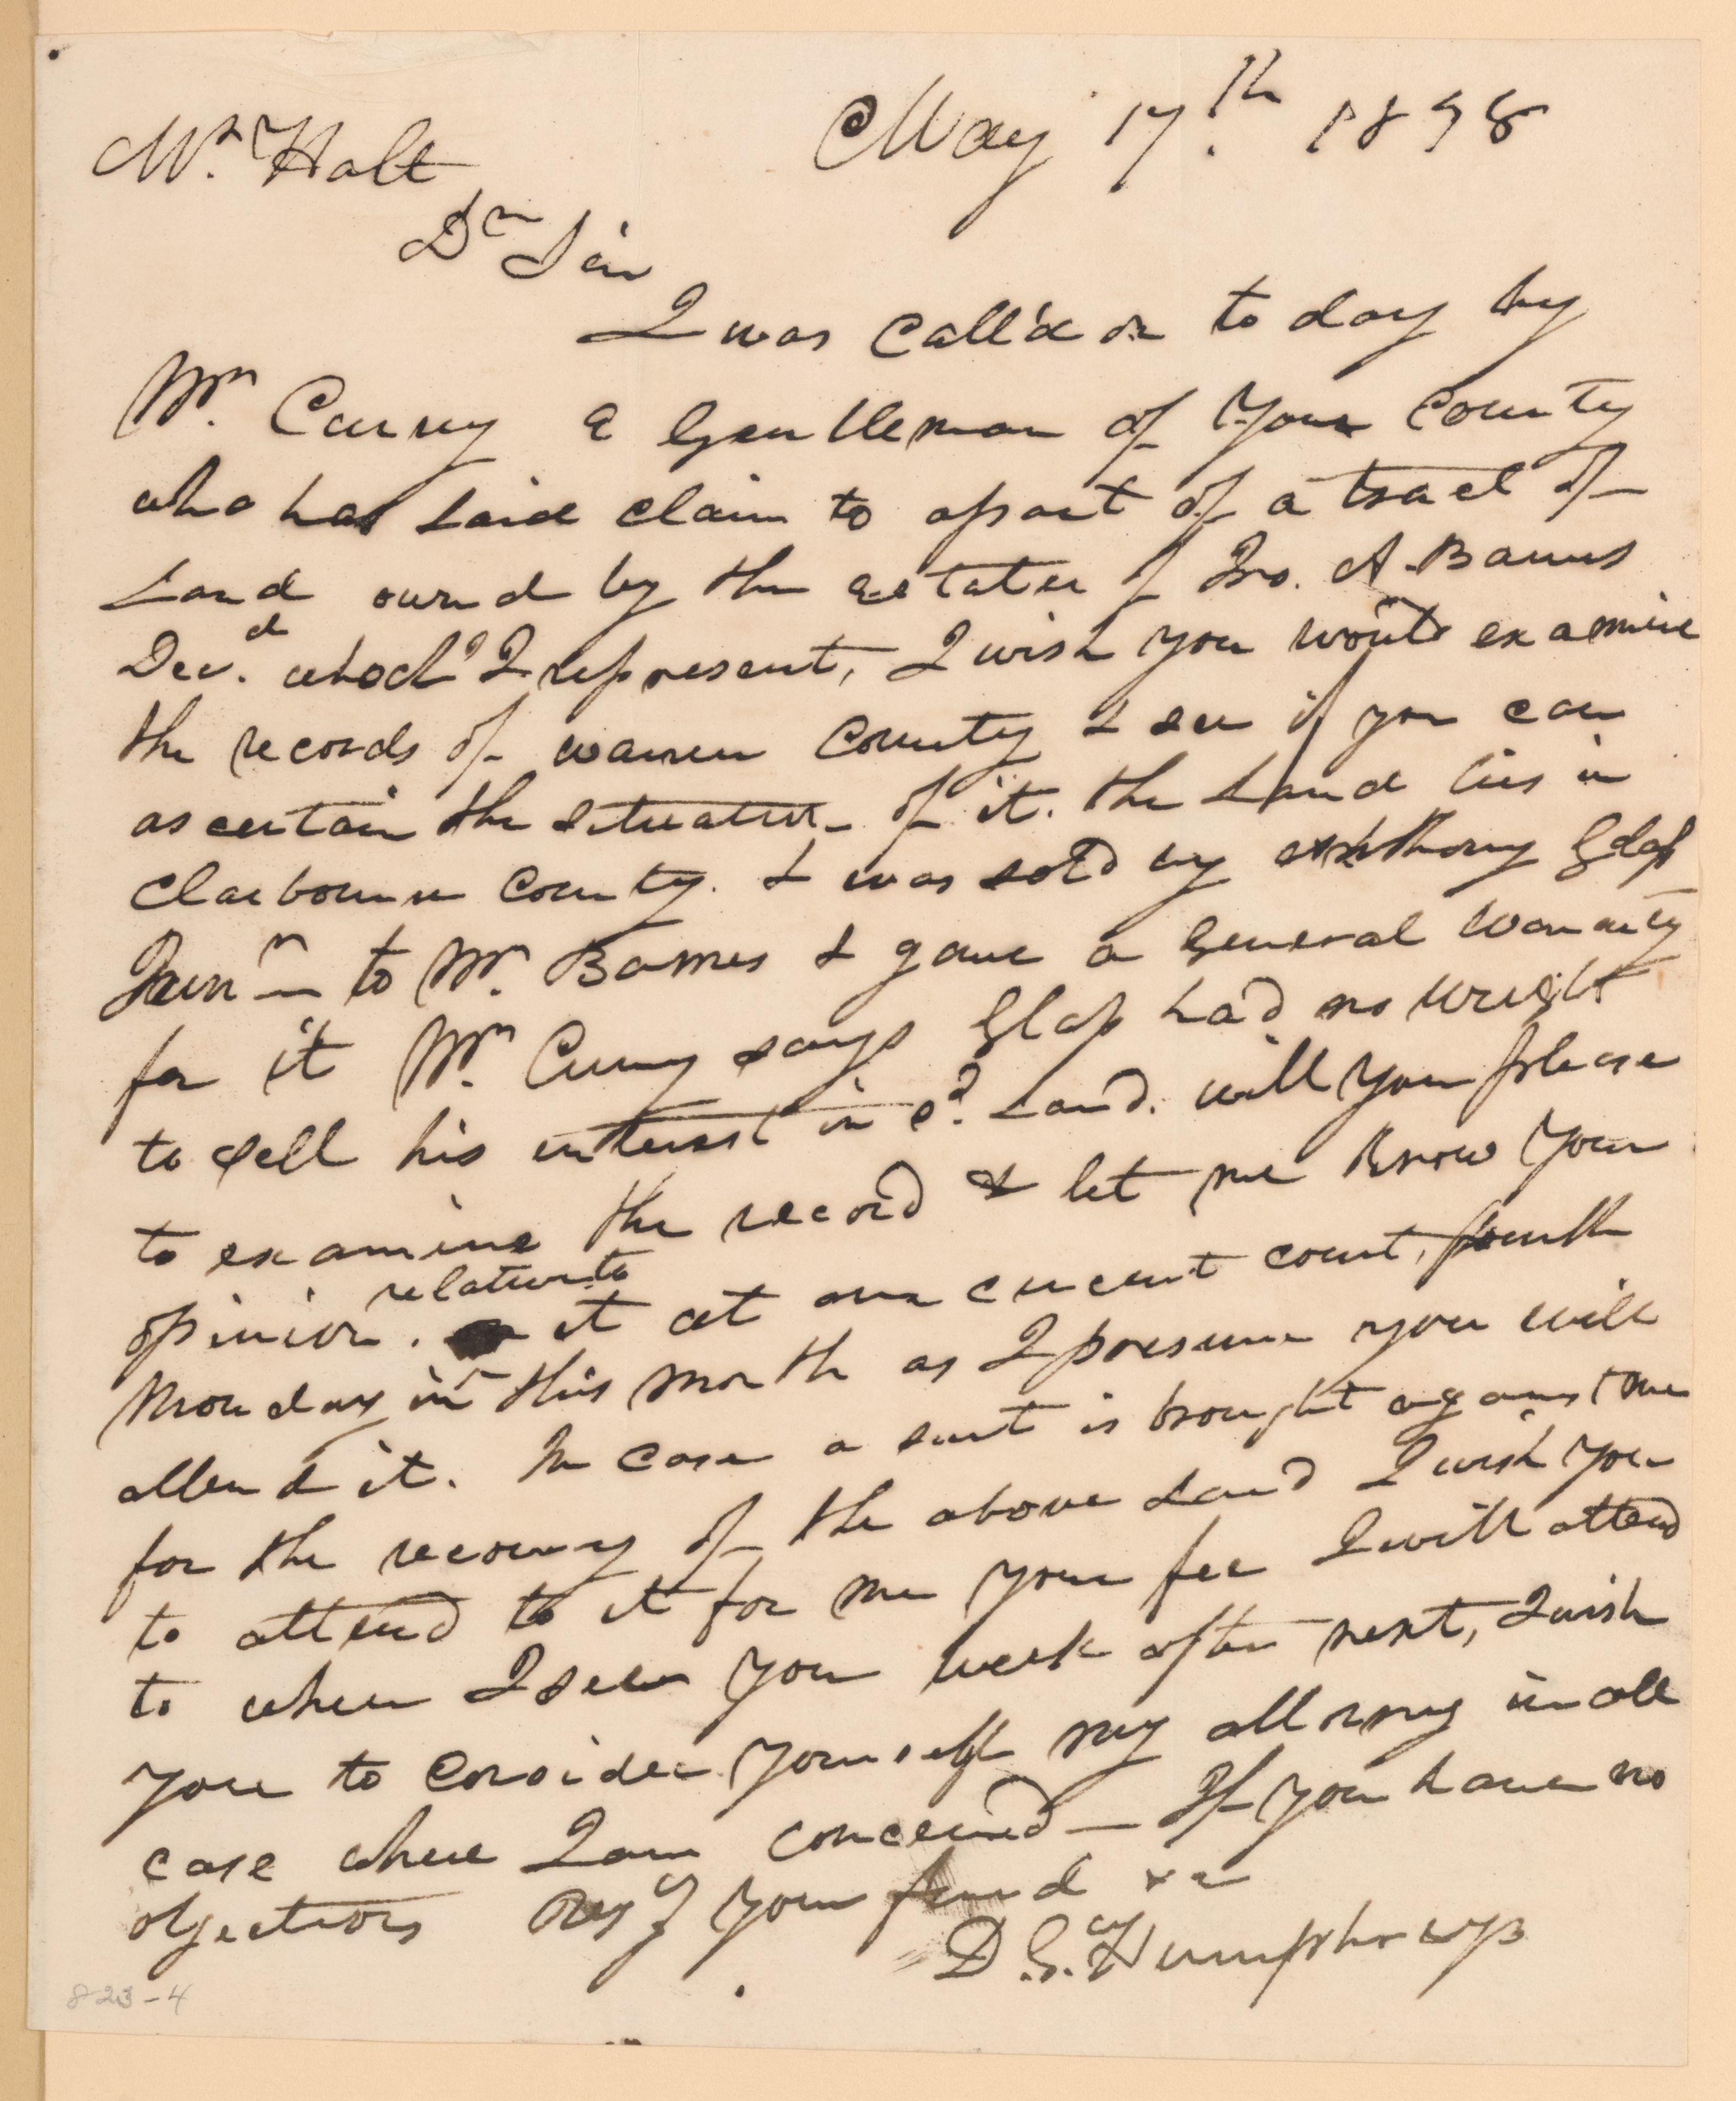 May 17th. 1838
Mr. Holt
Dr Sir
I was call'd on to day by
Mr. Curry a Gentleman of your County
who has laid claim to apart of a tract of
Land owned by the estate of Jno. A. Barnes
Decd. which I represent, I wish you would examine
the records of warren County & see if you can
ascertain the situation of it. the Land lies in
Claibourne County. & was sold by Anthony Glass
Junr to Mr. Barnes & gave a General warranty
for it Mr. Curry says Glass had no wright
to sell his interest in sd. Land. will you please
to examine the record & let me know your
opinion. relative to it at our circuit court, fourth
Monday in this month as I presume you will
attend it. In case a suit is brought against me
for the recovery of the above Land I wish you
to attend to it for me your fee I will attend
to when I see you week after next, I wish
you to consider yourself my attorney in all
case where I am concerned — If you have no
objections Resy your friend &c
D. G. Humphreys
823-4